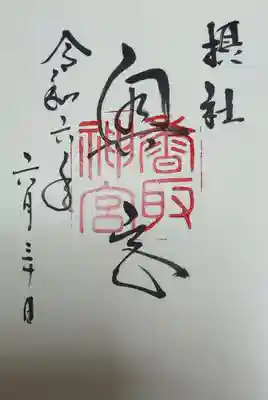 摂社
奥宮
香取神宮
令和六年
六月三十日